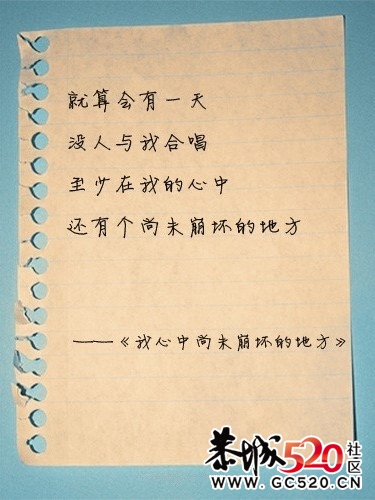 就算会有一天
没人与我合唱
至少在我的心中
还有个尚未崩坏的地方
——《我心中尚未崩坏的地方》
恭城520社区
WWW.GC520.CN